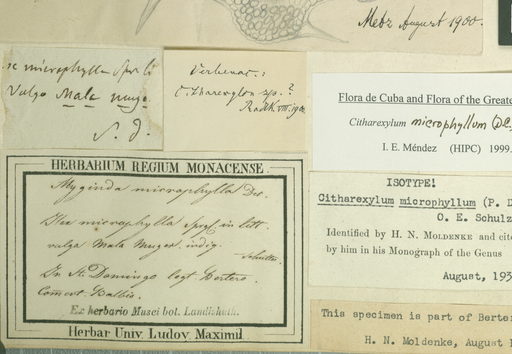 Metz August 1900.
microphylla Spr
Vulgo Mala muge.
S. d.
Verbenac.:
Citharexylon sp.?
Radlk. VIII. 190
Flora de Cuba and Flora of the Greate
Citharexylum microphyllum (DC.)
I. E. Méndez (HIPC) 1999.
HERBARIUM REGIUM MONACENSE.
Myginda microphylla Dec.
microphylla Sprgl in litt.
vulgo Mala Muger indig.
Schultes.
In St. Domingo legt Bertero.
Comert. Balbis.
Ex herbario Musei bot. Landishuth.
Herbar. Univ. Ludov. Maximil.
ISOTYPE!
Citharexylum microphyllum (P. D
O. E. Schulz
Identified by H. N. MOLDENKE and cite
by him in his Monograph of the Genus
August, 193
This specimen is part of Berter
H. N. Moldenke, August